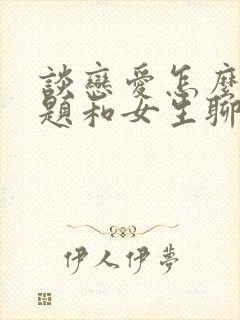 談戀愛怎麼
題和女生聊
伊人伊夢